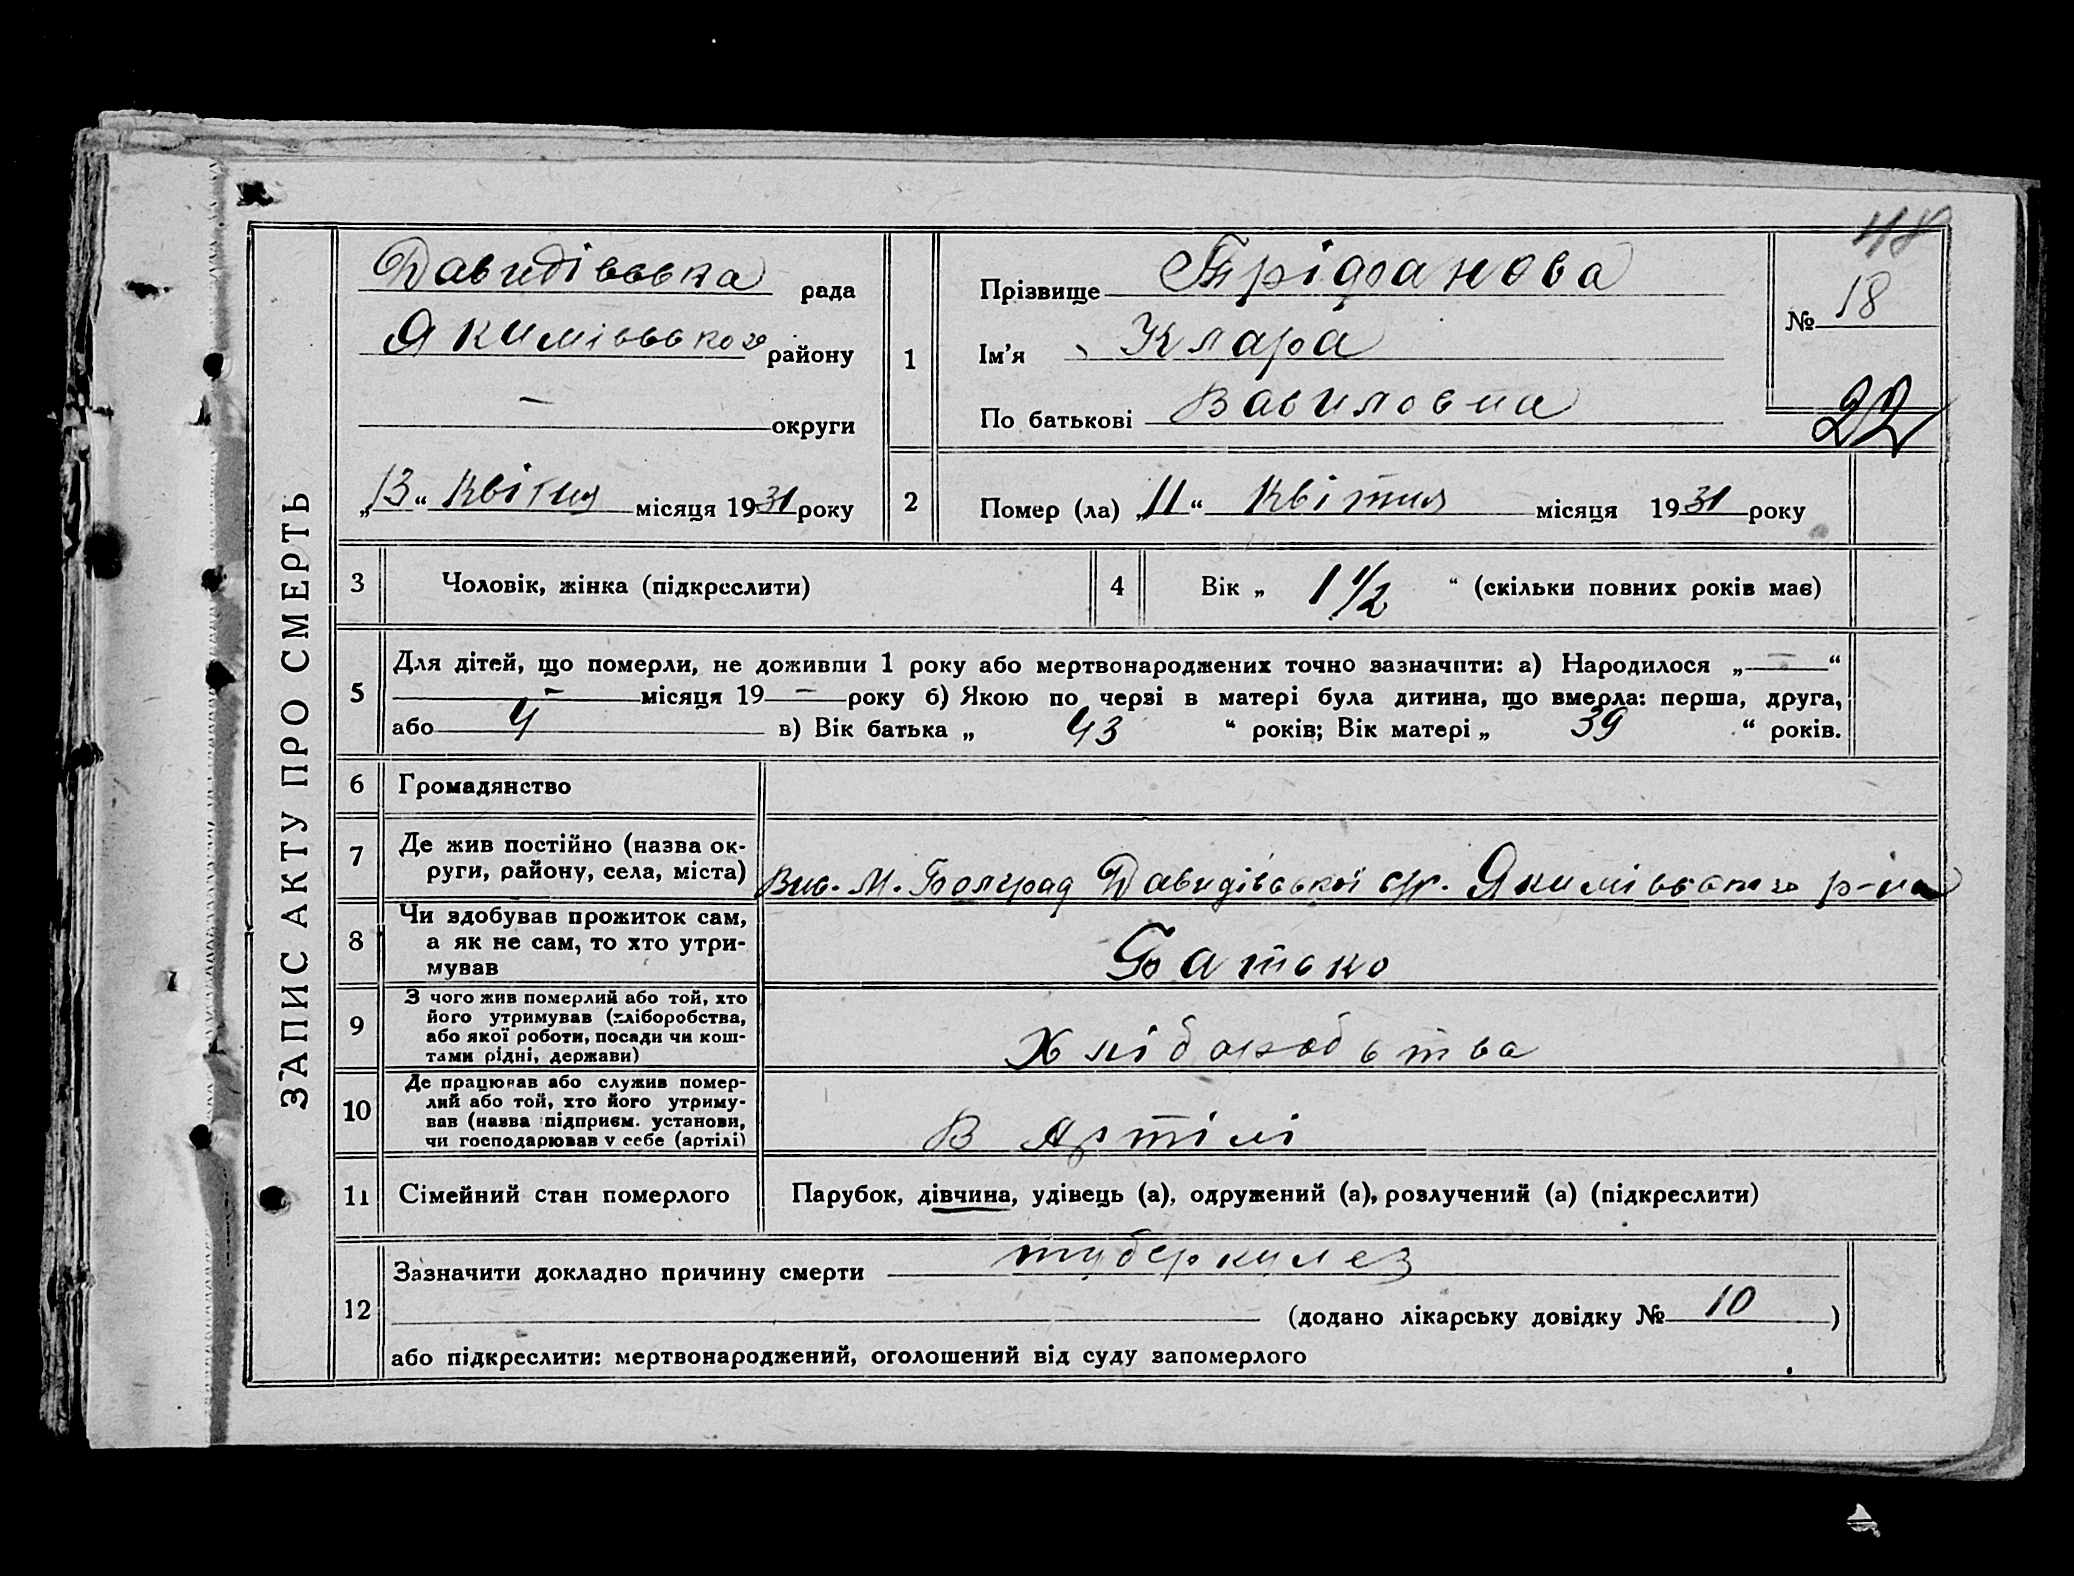 ЗАПИС АКТУ ПРО СМЕРТЬ
48
Давидівська рада
Якимівського району
— округи
„13“ Квітня місяця 1931 року
1
Прізвище Тріфанова
Ім’я Клара
По батькові Вавиловна
№ 18
22
2
Помер (ла) „11“ Квітня місяця 1931 року
3 Чоловік, жінка (підкреслити)
4 Вік „ 1 1/2 “ (скільки повних років має)
5
Для дітей, що померли, не доживши 1 року або мертвонароджених точно зазначити: а) Народилося „ — “
— місяця 19 — року б) Якою по черзі в матері була дитина, що вмерла: перша, друга,
або 4 в) Вік батька „ 43 “ років; Вік матері „ 39 “ років.
6 Громадянство
7 Де жив постійно (назва ок-
руги, району, села, міста)
Вис. М. Болград Давидівської с/р. Якимівського р-на
8 Чи здобував прожиток сам,
а як не сам, то хто утри-
мував
Батько
9 З чого жив померлий або той, хто
його утримував (хліборобства,
або якої роботи, посади чи кош-
тами рідні, держави)
Хліборобства
10 Де працював або служив помер-
лий або той, хто його утриму-
вав (назва підприєм. установи,
чи господарював у себе (артілі)
В Артілі
11 Сімейний стан померлого
Парубок, дівчина, удівець (а), одружений (а), розлучений (а) (підкреслити)
12
Зазначити докладно причину смерти туберкулез
(додано лікарську довідку № 10 )
або підкреслити: мертвонароджений, оголошений від суду запомерлого